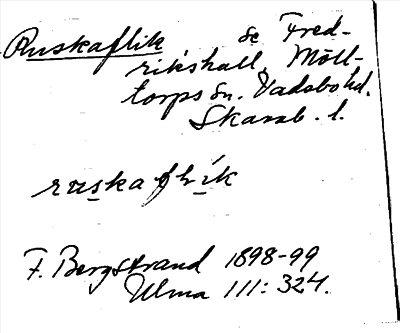 Ruskaflik se Fred-
rikshall, Möll-
torps sn. Vadsbo hd.
Skarab. l.
ruskaflik
F. Bergstrand 1898-99
Ulma 111: 324.